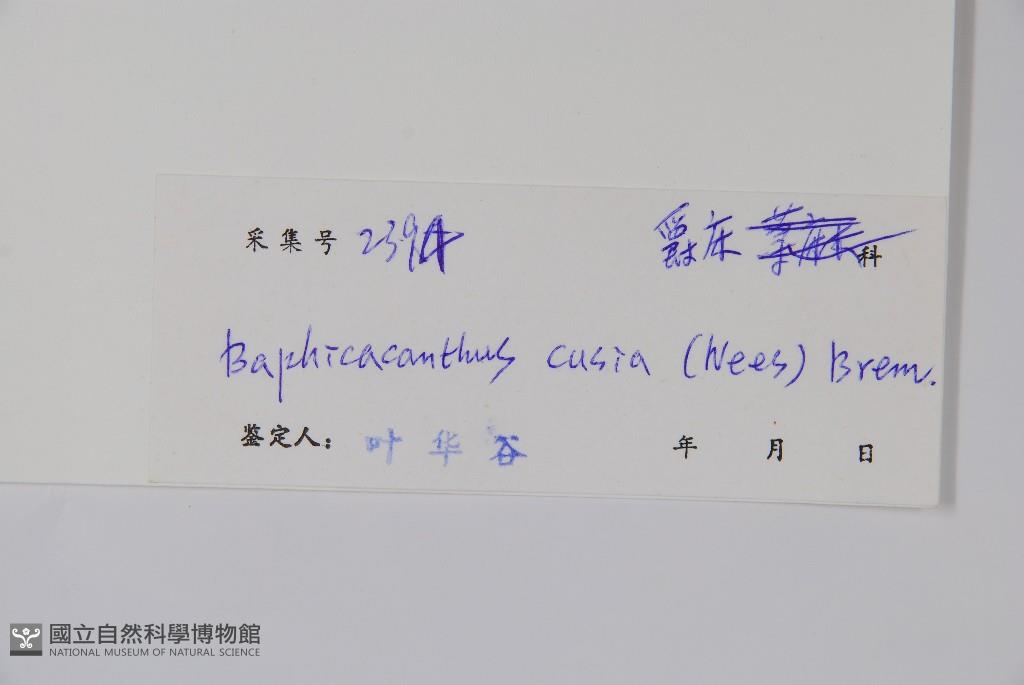 采集号 2394 爵床 荨麻 科
Baphicacanthus cusia (Nees) Brem.
鉴定人: 叶华谷 年 月 日
國立自然科學博物館
NATIONAL MUSEUM OF NATURAL SCIENCE